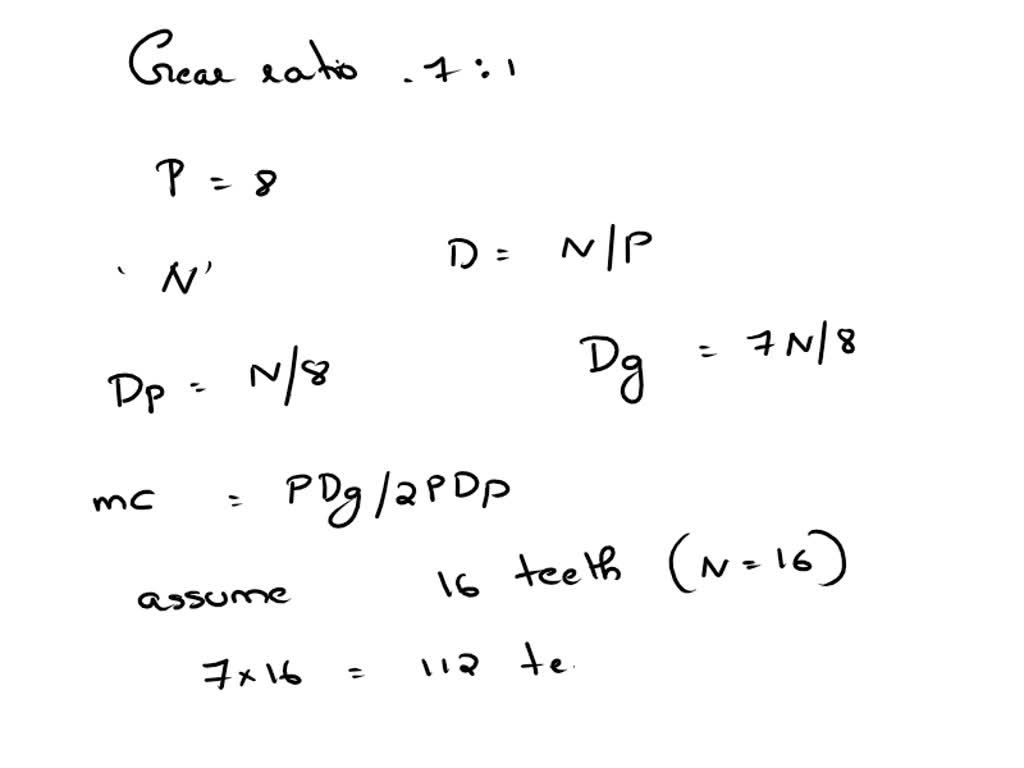 Gear ratio . 7 : 1
P = 8
'N'
D = N/P
Dp = N/8
Dg = 7N/8
mc = PDg/2PDp
assume 16 teeth (N = 16)
7 x 16 = 112 te